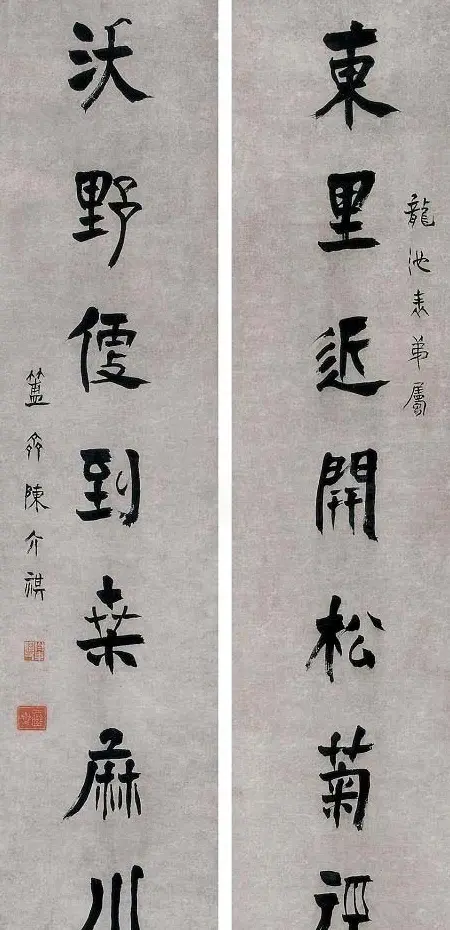 龍池表弟屬
東里近開松菊徑
沃野便到桒麻川
簠齋陳介祺